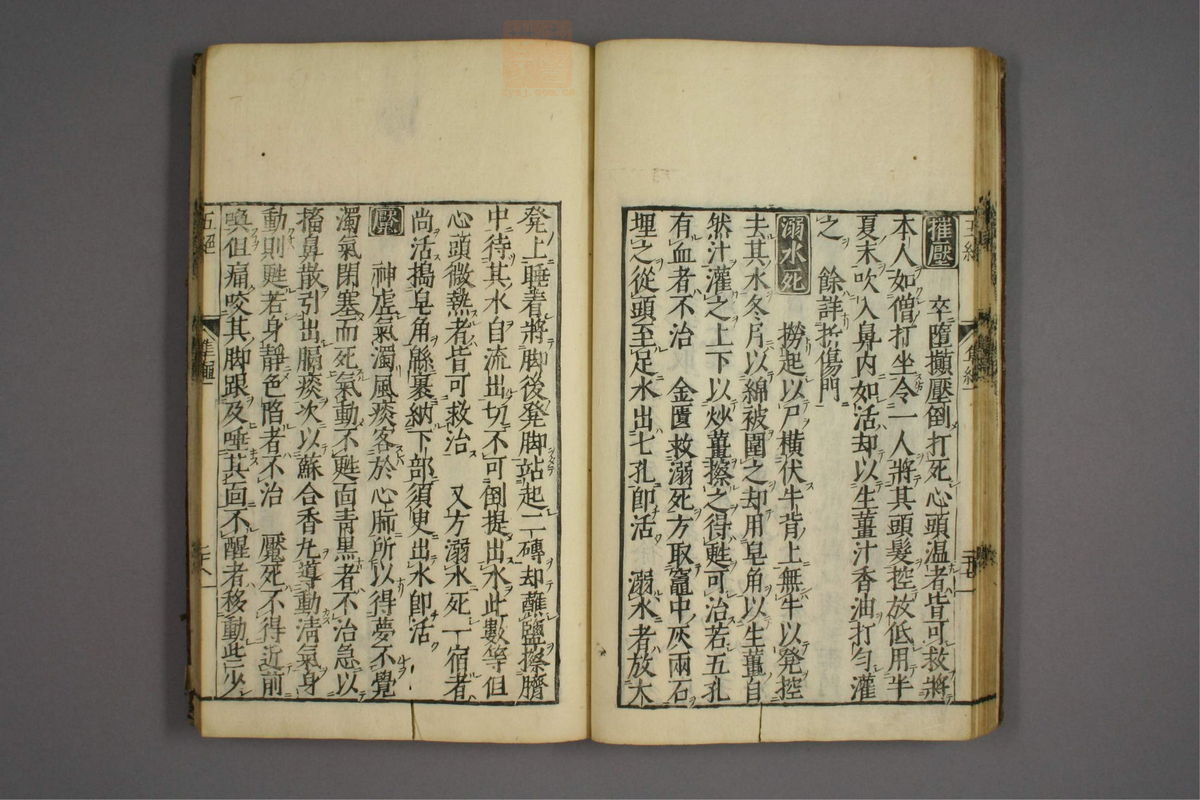 摧壓
卒墮攧壓倒打死心頭温者皆可救將
本人如僧打坐令一人將其頭髮控放低用半
夏末吹入鼻内如活却以生薑汁香油打匀灌
之 餘詳折傷門
溺水死
撈起以尸横伏牛背上無牛以凳控
去其水冬月以綿被圍之却用皂角以生薑自
然汁灌之上下以炒薑擦之得甦可治若五孔
有血者不治 金匱救溺死方取竈中灰兩石
埋之從頭至足水出七孔即活 溺水者放大
凳上睡着將脚後凳脚站起二磚却蘸鹽擦臍
中待其水自流出切不可倒提出水此數等但
心頭微熱者皆可救治 又方溺水死一宿者
尚活搗皂角緜裹納下部須臾出水即活
魘
神虛氣濁風痰客於心肺所以得夢不覺
濁氣閉塞而死氣動不甦面青黑者不治急以
搐鼻散引出膈痰次以蘇合香丸導動清氣身
動則甦若身靜色陷者不治 魘死不得近前
喚但痛咬其脚跟及唾其面不醒者移動些少
五絶